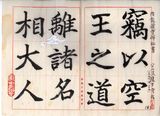 竊以空
王之道
離諸名
相大人